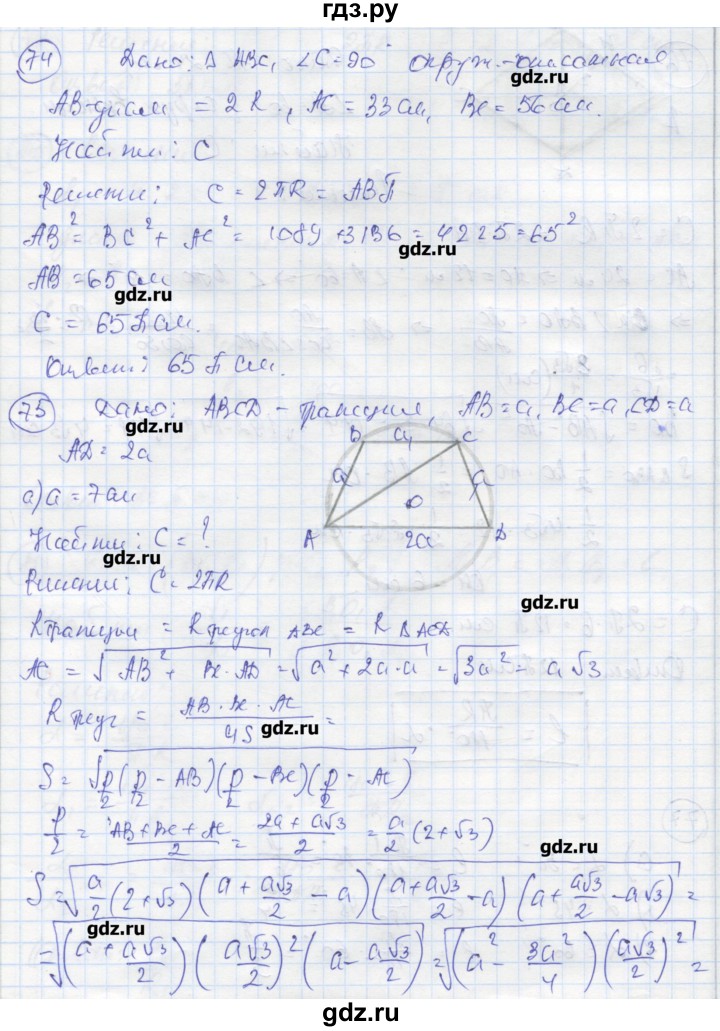 гдз.ру
74 Дано: Δ ABC, ∠C=90° окруж.-описанная
AB-диам = 2R, AC = 33 см, BC = 56 см.
Найти: C
Решение: C = 2πR = ABπ
AB² = BC² + AC² = 1089 + 3136 = 4225 = 65²
gdz.ru
AB = 65 см
gdz.ru
C = 65π см.
gdz.ru
Ответ: 65π см.
gdz.ru
75 Дано: ABCD - трапеция, AB = a, BC = a, CD = a
B a C
AD = 2a
a a
а) a = 7 см
O
gdz.ru
A 2a D
Найти: C = ?
Решение: C = 2πR
gdz.ru
R трапеции = R треугол ABC = R Δ ACD
AC = √(AB² + BC · AD) = √(a² + 2a · a) = √(3a²) = a√3
gdz.ru
R треуг = (AB · BC · AC)/(4S) =
gdz.ru
S = √(p/2 (p/2 - AB)(p/2 - BC)(p/2 - AC))
gdz.ru
p/2 = (AB + BC + AC)/2 = (2a + a√3)/2 = a/2 (2 + √3)
gdz.ru
S = √(a/2 (2 + √3) (a + a√3/2 - a) (a + a√3/2 - a) (a + a√3/2 - a√3)) =
gdz.ru
= √((a + a√3/2) (a√3/2)² (a - a√3/2)) = √((a² - 3a²/4) (a√3/2)²) =
gdz.ru
gdz.ru